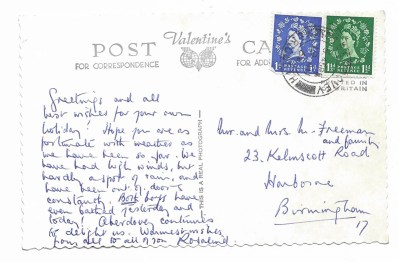 POST
Valentine's
CA
FOR CORRESPONDENCE
FOR ADD
Greetings and all
best wishes for your own
holiday! Hope you are as
fortunate with weather as
we have been so far. We
have had high winds, but
hardly a spot of rain, and
have been out of doors
constantly. Both boys have
even bathed yesterday and
today! Aberdovey continues
to delight us. Warmest wishes
from all to all of you Rosalind
THIS IS A REAL PHOTOGRAPH
1D
1½D
ED IN
BRITAIN
Mr. and Mrs. N. Freeman
and family
23. Kelmscott Road
Harborne
Birmingham
17